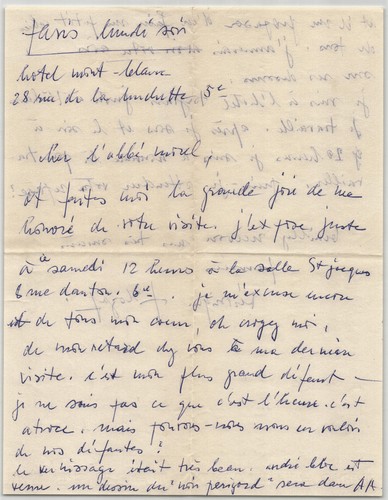 Paris lundi soir
hotel mont-blanc
28 rue de la huchette 5e
cher l'abbé morel,
et faites moi la grande joie de me
honoré de votre visite. j'expose juste
à samedi 12 heures à la salle St jacques
8 rue danton. 6e. je m'excuse encore
de tous mon coeur, oh croyez moi,
de mon retard chez vous à ma dernière
visite. c'est mon plus grand défaut —
je ne sais pas ce que c'est l'heure. c'est
atroce. mais pouvons-nous nous en vouloir
de nos défauts?
le vernissage était très beau. andré lhote est
venu. un dessin du "noir périgord" sera dans